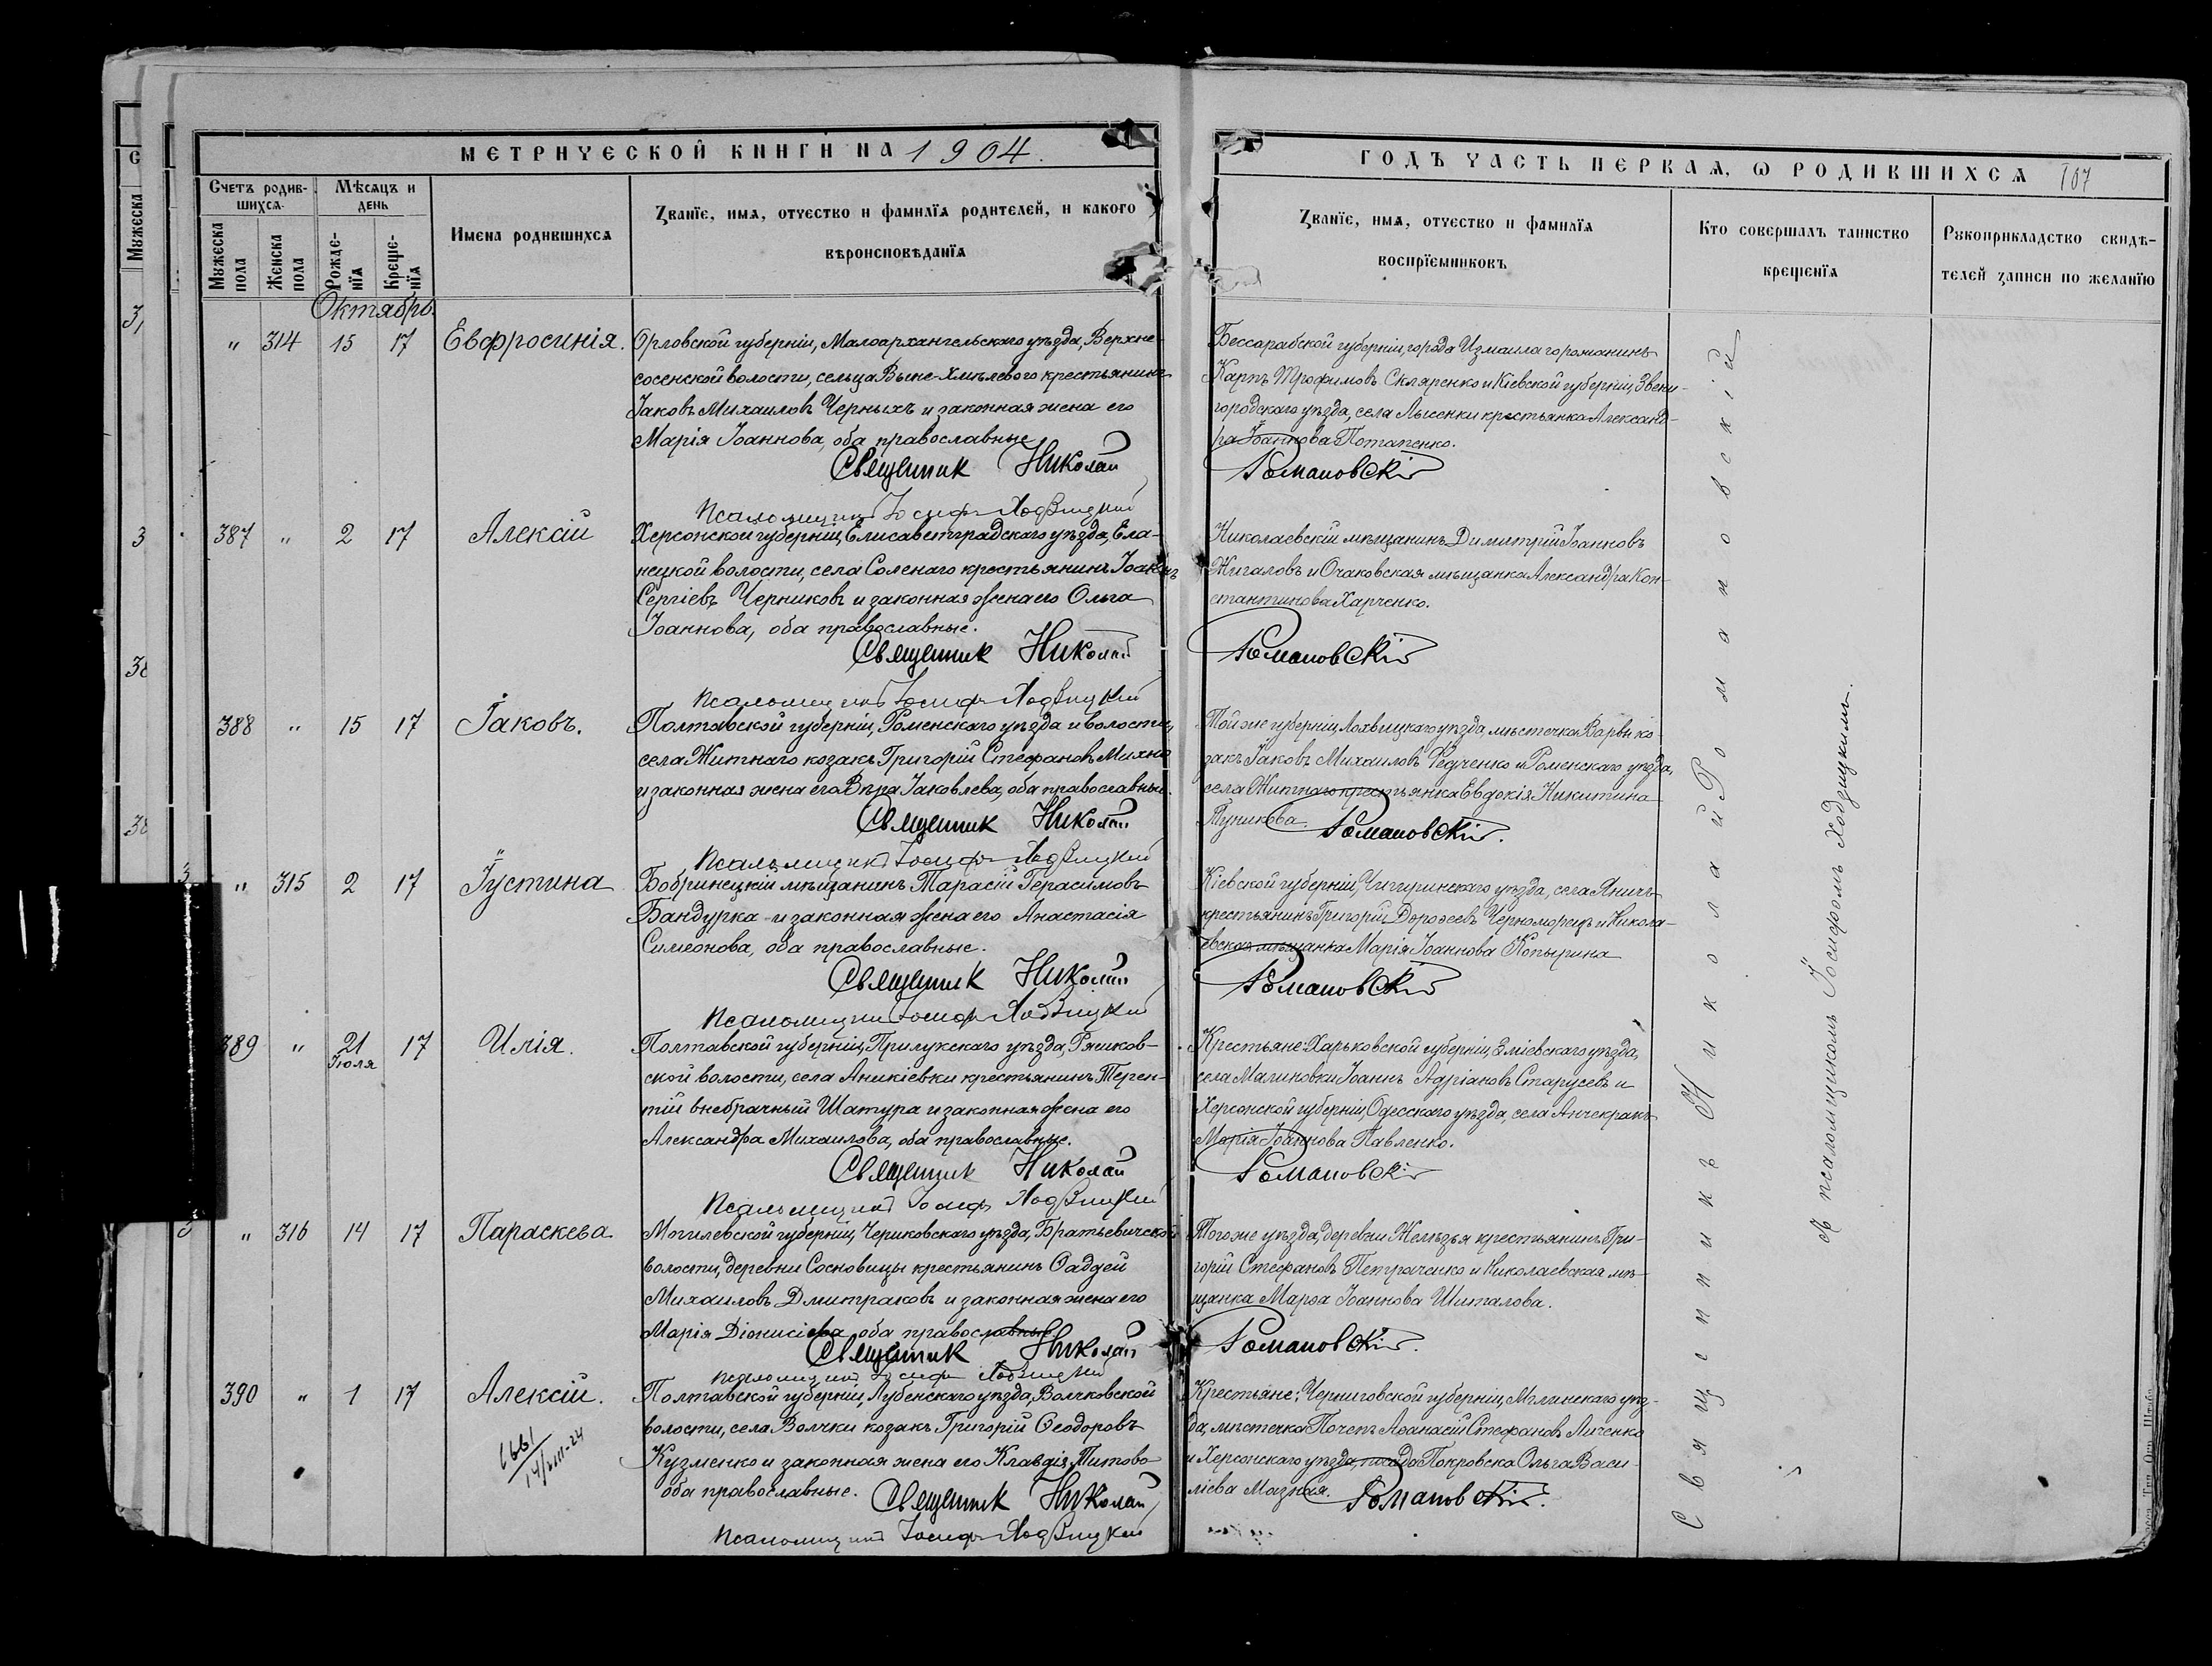 МЕТРИЧЕСКОЙ КНИГИ НА 1904.
Счетъ родив-
шихся.
Мѣсяцъ и
день
Мужеска
пола
Женска
пола
Рожде-
нїя
Креще-
нїя
Имена родившихся
Званїе, имя, отчество и фамилїя родителей, и какого
вѣроисповѣданїя
Октябрь.
" 314 15 17 Евфросинія.
Орловской губерніи, Малоархангельскаго уѣзда, Верхне-
сосенской волости, сельца Выше-Хмѣлевого крестьянинъ
Іаковъ Михаиловъ Черныхъ и законная жена его
Марія Іоаннова, оба православные
Священник Николай
Псаломщикъ Іосифъ Ходзицкій
387 " 2 17 Алексій
Херсонской губерніи, Елисаветградскаго уѣзда, Ела-
нецкой волости, села Соленаго крестьянинъ Іоаннъ
Сергіевъ Черниковъ и законная жена его Ольга
Іоаннова, оба православные.
Священник Николай
Псаломщикъ Іосифъ Ходзицкій
388 " 15 17 Іаковъ.
Полтавской губерніи, Роменскаго уѣзда и волости,
села Житнаго козакъ Григорій Стефановъ Михно
и законная жена его Вѣра Іаковлева, оба православные.
Священник Николай
Псаломщикъ Іосифъ Ходзицкій
" 315 2 17 Іустина
Бобринецкій мѣщанинъ Тарасій Герасимовъ
Бандурка и законная жена его Анастасія
Симеонова, оба православные.
Священник Николай
Псаломщикъ Іосифъ Ходзицкій
389 " 21 17 Илія.
Іюля
Полтавской губерніи, Прилукскаго уѣзда, Ряшков-
ской волости, села Аникіевки крестьянинъ Терен-
тій внебрачный Шатура и законная жена его
Александра Михаилова, оба православные.
Священник Николай
Псаломщикъ Іосифъ Ходзицкій
" 316 14 17 Параскева
Могилевской губерніи, Чериковскаго уѣзда, Братьевичской
волости, деревни Сосновицы крестьянинъ Ѳаддей
Михаиловъ Дмитраковъ и законная жена его
Марія Діонисіева оба православные
Священник Николай
Псаломщикъ Іосифъ Ходзицкій
390 " 1 17 Алексій.
Полтавской губерніи, Лубенскаго уѣзда, Волчковской
волости, села Волчки козакъ Григорій Ѳеодоровъ
Кузменко и законная жена его Клавдія Титова
оба православные.
Священник Николай
Псаломщикъ Іосифъ Ходзицкій
ГОДЪ ЧАСТЬ ПЕРВАЯ, Ѡ РОДИВШИХСЯ 107
Званїе, имя, отчество и фамилїя
воспрїемниковъ
Кто совершалъ таинство
крещенїя
Рукоприкладство свидѣ-
телей записи по желанїю
Бессарабской губерніи, города Измаила горожанинъ
Карпъ Трофимовъ Скляренко и Кіевской губерніи, Звени-
городскаго уѣзда, села Лысенки крестьянка Александ-
ра Іоаннова Потапенко.
Романовскій
Николаевскій мѣщанинъ Димитрій Іоанновъ
Жигаловъ и Очаковская мѣщанка Александра Кон-
стантинова Харченко.
Романовскій
Той же губерніи, Лохвицкаго уѣзда, мѣстечка Варвы ко-
закъ Іаковъ Михаиловъ Федченко и Роменскаго уѣзда,
села Житнаго крестьянка Евдокія Никитина
Романовскій.
Кіевской губерніи, Чигиринскаго уѣзда, села
крестьянинъ Григорій Дороѳеевъ Черноморецъ и Никола-
евская мѣщанка Марія Іоаннова Копырина
Романовскій
Крестьяне: Харьковской губерніи, Зміевскаго уѣзда,
села Малиновки Іоаннъ Адріановъ Старусевъ и
Херсонской губерніи, Одесскаго уѣзда, села Анчекракъ
Марія Іоаннова Павленко.
Романовскій
Того же уѣзда, деревни Желѣзья крестьянинъ Гри-
горій Стефановъ Петраченко и Николаевская мѣ-
щанка Марѳа Іоаннова Шиталова.
Романовскій.
Крестьяне: Черниговской губерніи, Мглинскаго уѣз-
да, мѣстечка Почепъ Аѳанасій Стефановъ Личенко
и Херсонскаго уѣзда, посада Покровска Ольга Васи-
ліева Мазная.
Романовскій.
Священникъ Николай Романовскій
съ псаломщикомъ Іосифомъ Ходзицкимъ.